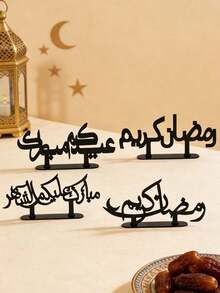 عيدكم مبارك
رمضان كريم
مبارك عليكم الشهر
رمضان كريم